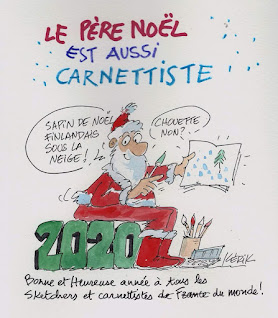 LE PÈRE NOËL
EST AUSSI
CARNETTISTE
SAPIN DE NOËL
FINLANDAIS
SOUS LA
NEIGE !
CHOUETTE
NON?
2020
KÉRIK
Bonne et Heureuse année à tous les
sketchers et carnettistes de France et du monde!